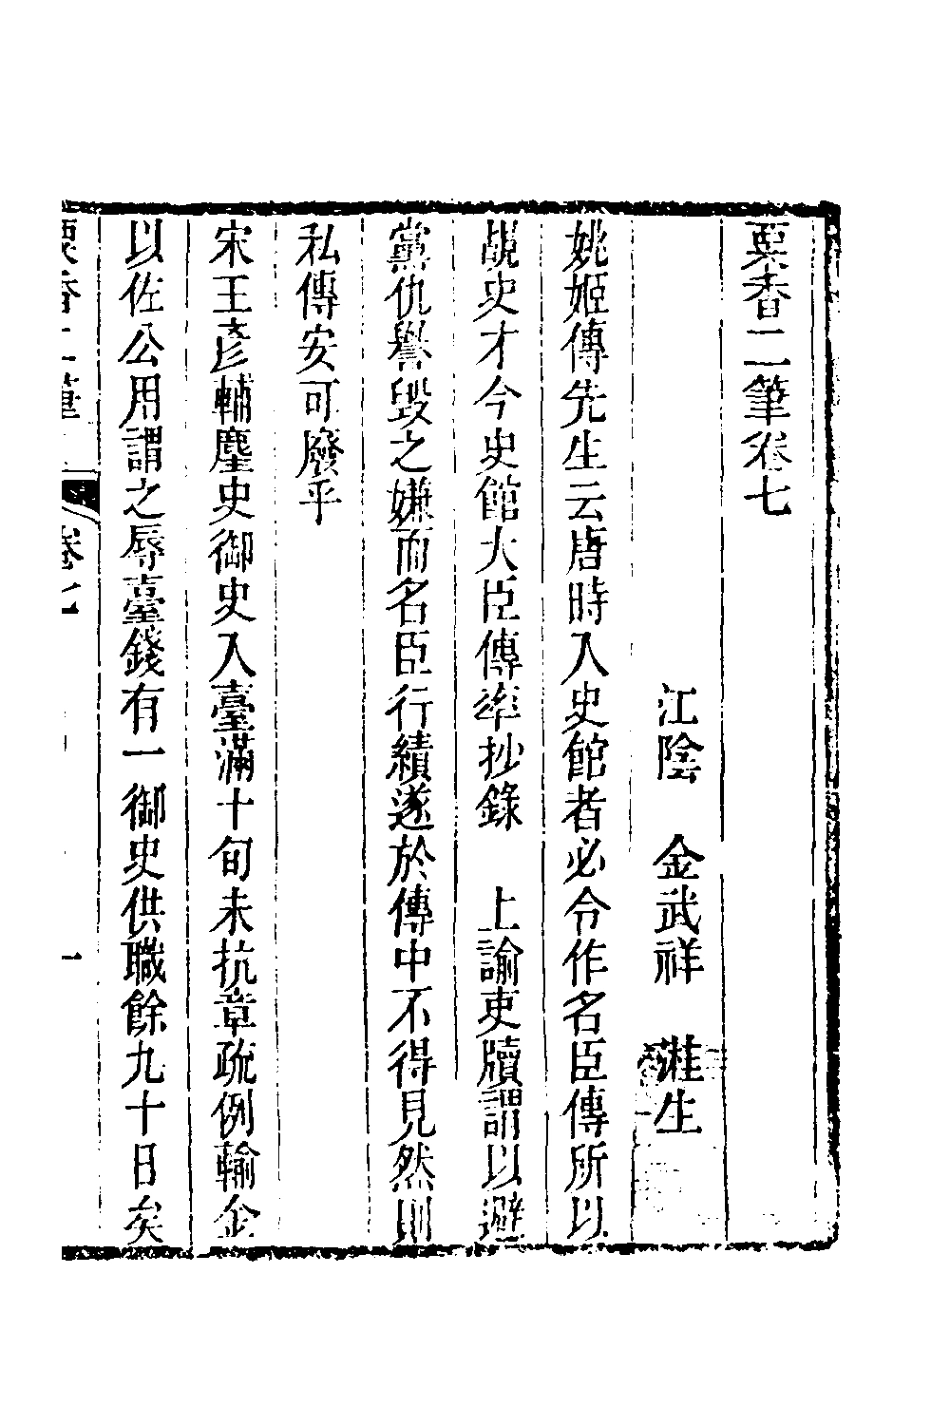 粟香二筆卷七
江陰　金武祥　溎生
姚姬傳先生云唐時入史館者必令作名臣傳所以
覘史才今史館大臣傳率抄錄　上諭吏牘謂以避
黨仇譽毀之嫌而名臣行績遂於傳中不得見然則
私傳安可廢乎
宋王彥輔麈史御史入臺滿十旬未抗章疏例輸金
以佐公用謂之辱臺錢有一御史供職餘九十日矣
粟香二筆　卷七　一